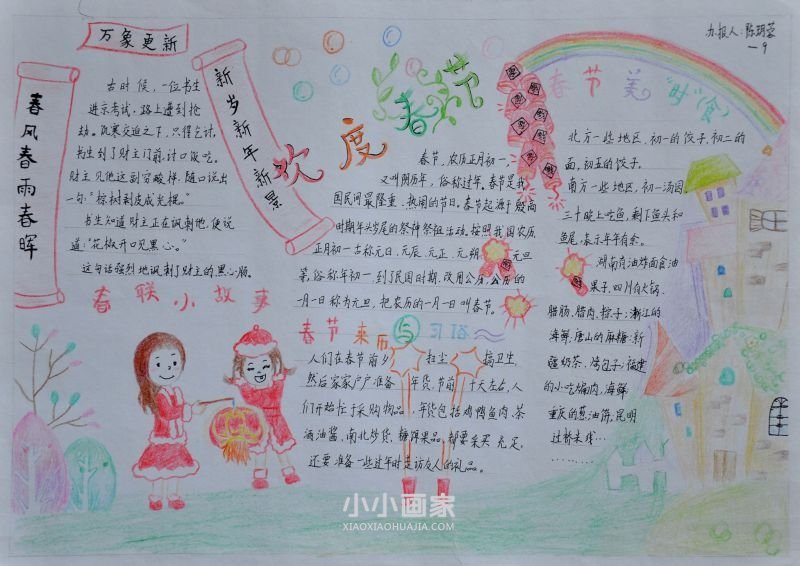 万象更新
春风春雨春晖
新岁新年新景
欢度春节
春节美"时"(食)
办报人:陈玥蓉
一9
古时候,一位书生
进京考试,路上遭到抢
劫。饥寒交迫之下,只得乞讨。
书生到了财主门前,讨口饭吃。
财主见他这副穷酸样,随口说出
一句:"棕树剥皮成光棍。"
书生知道财主正在讽刺他,便说
道:"花椒开口见黑心。"
这句话强烈地讽刺了财主的黑心顺。
春联小故事
春节,农历正月初一,
又叫阴历年,俗称过年。春节是我
国民间最隆重、热闹的节日。春节起源于殷商
时期年头岁尾的祭神祭祖活动。按照我国农历
正月初一古称元日,元辰,元正,元朔,元旦
等,俗称年初一,到了民国时期,改用公历,公历的
一月一日称为元旦,把农历的一月一日叫春节。
春节来历与习俗
人们在春节前夕扫尘,搞卫生,
然后家家户户准备年货,节前十天左右,人
们开始忙于采购物品,年货包括鸡鸭鱼肉、茶
酒油酱、南北炒货、糖饵果品,都要采买充足,
还要准备一些过年时走访友人的礼品。
北方一些地区,初一的饺子,初二的
面,初五的饺子。
南方一些地区,初一汤圆。
三十晚上吃鱼,剩下鱼头和
鱼尾,表示年年有余。
湖南有油炸面食油
果子,四川有火锅、
腊肠、腊肉、粽子;浙江的
海鲜,唐山的麻糖;新
疆奶茶、烤包子;福建
的小吃扁肉,海鲜
重庆的葱油饼,昆明
过桥米线……
小小画家
XIAOXIAOHUAJIA.COM